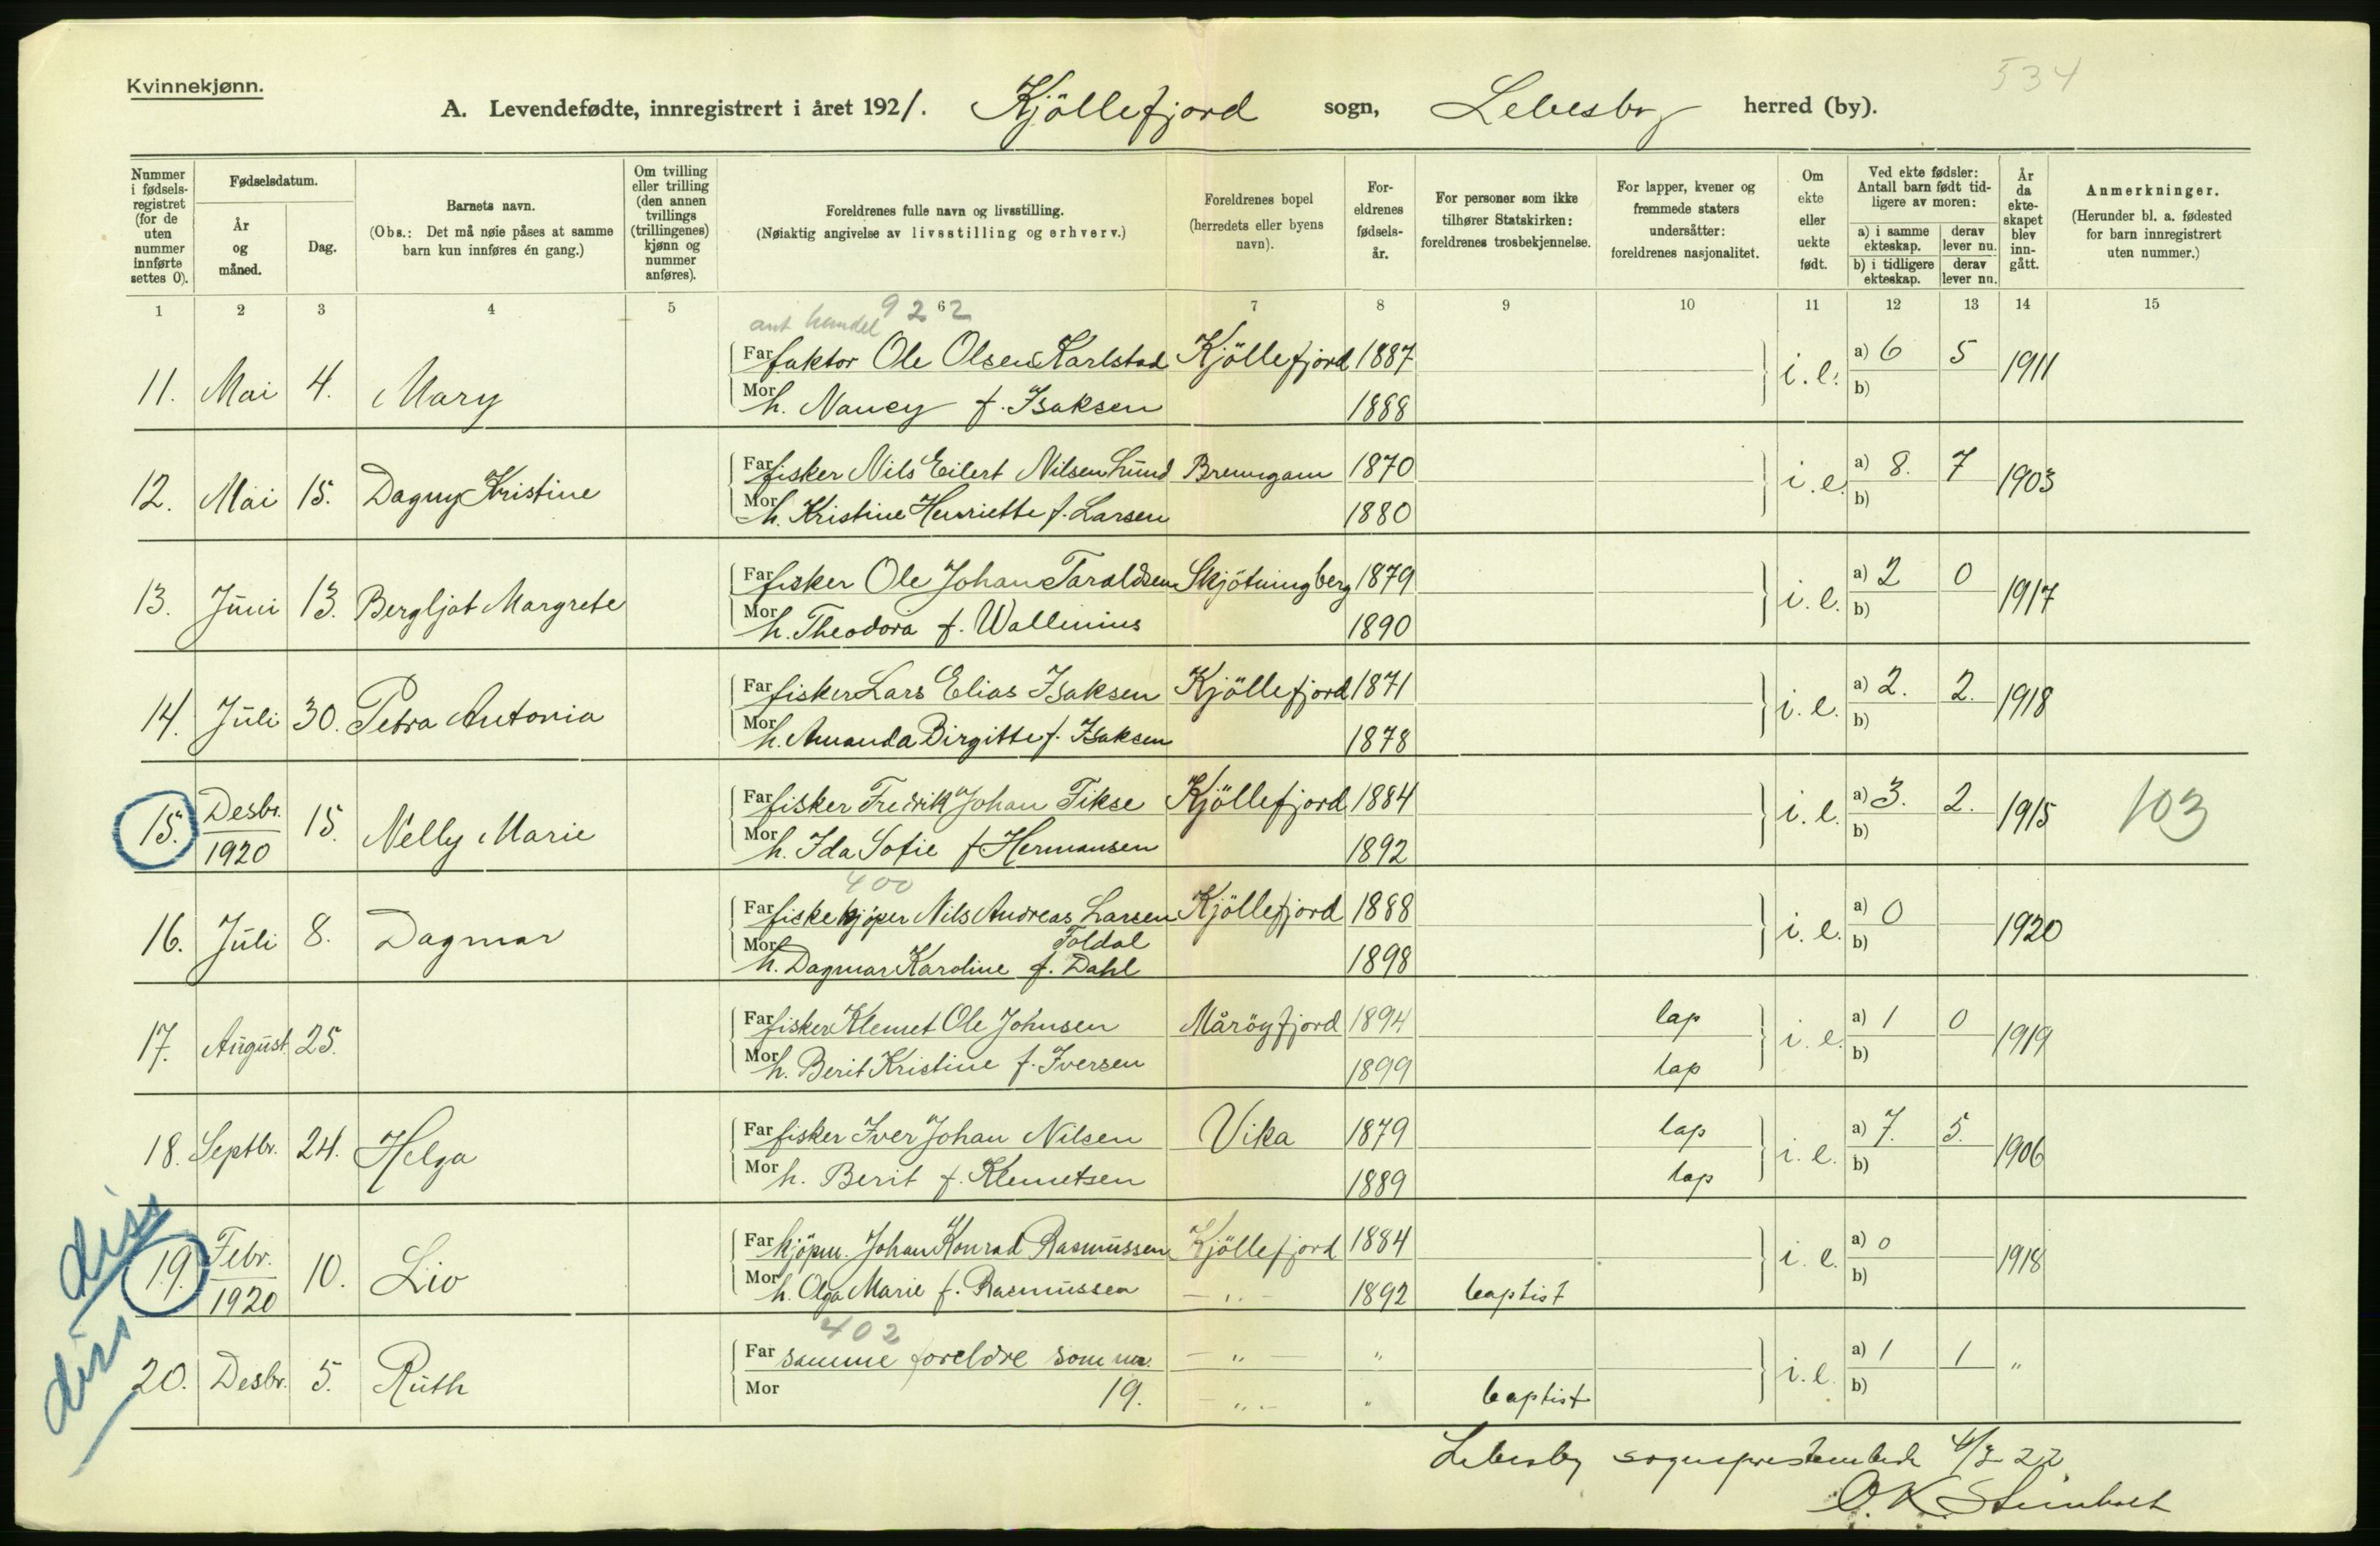 534
Kvinnekjønn.
A. Levendefødte, innregistrert i året 1921. Kjöllefjord sogn, Lebesby herred (by).
Nummer i fødsels-registret (for de uten nummer innførte settes 0).
Fødselsdatum.
År og måned.
Dag.
Barnets navn.
(Obs.: Det må nøie påses at samme barn kun innføres én gang.)
Om tvilling eller trilling (den annen tvillings (trillingenes) kjønn og nummer anføres).
Foreldrenes fulle navn og livsstilling.
(Nøiaktig angivelse av livsstilling og erhverv.)
Foreldrenes bopel (herredets eller byens navn).
For-eldrenes fødsels-år.
For personer som ikke tilhører Statskirken: foreldrenes trosbekjennelse.
For lapper, kvener og fremmede staters undersåtter: foreldrenes nasjonalitet.
Om ekte eller uekte født.
Ved ekte fødsler: Antall barn født tid-ligere av moren:
a) i samme ekteskap. derav lever nu.
b) i tidligere ekteskap. derav lever nu.
År da ekte-skapet blev inn-gått.
Anmerkninger.
(Herunder bl. a. fødested for barn innregistrert uten nummer.)
1 2 3 4 5 6 7 8 9 10 11 12 13 14 15
ant handel 9262
Far faktor Ole Olsen Karlstad Kjöllefjord 1887
11. Mai 4. Mary i. e. a) 6 5 b) 1911
Mor h. Nancy f. Isaksen 1888
Far fisker Nils Eilert Nilsen Lund Brenngam 1870
12. Mai 15. Dagny Kristine i. e. a) 8. 7 b) 1903
Mor h. Kristine Henriette f. Larsen 1880
Far fisker Ole Johan Taraldsen Skjötningberg 1879
13. Juni 13. Bergljot Margrete i. e. a) 2 0 b) 1917
Mor h. Theodora f. Wallenius 1890
Far fisker Lars Elias Isaksen Kjöllefjord 1871
14. Juli 30. Petra Antonia i. e. a) 2. 2. b) 1918
Mor h. Amanda Birgitte f. Isaksen 1878
Far fisker Fredrik Johan Fikse Kjöllefjord 1884
15. Desbr. 1920 15. Nelly Marie i. e. a) 3. 2. b) 1915 103
Mor h. Ida Sofie f Hermansen 1892
400
Far fiskekjöper Nils Andreas Larsen Foldal Kjöllefjord 1888
16. Juli 8. Dagmar i. e. a) 0 b) 1920
Mor h. Dagmar Karoline f. Dahl 1898
Far fisker Klemet Ole Johnsen Måröyfjord 1894 lap
17. August 25. i. e. a) 1 0 b) 1919
Mor h. Berit Kristine f. Iversen 1899 lap
Far fisker Iver Johan Nilsen Vika 1879 lap
18. Septbr. 24. Helga i. e. a) 7. 5. b) 1906
Mor h. Berit f. Klemetsen 1889 lap
diss
Far kjöpm. Johan Konrad Rasmussen Kjöllefjord 1884
19. Febr. 1920 10. Liv i. e. a) 0 b) 1918
Mor h. Olga Marie f. Rasmussen — „ — 1892 baptist
402
diss
Far samme foreldre som nr. — „ — „
20. Desbr. 5. Ruth i. e. a) 1 1 b) „
Mor 19. — „ — „ baptist
Lebesby sogneprestembede 4/3 22
O. K. Steinholt